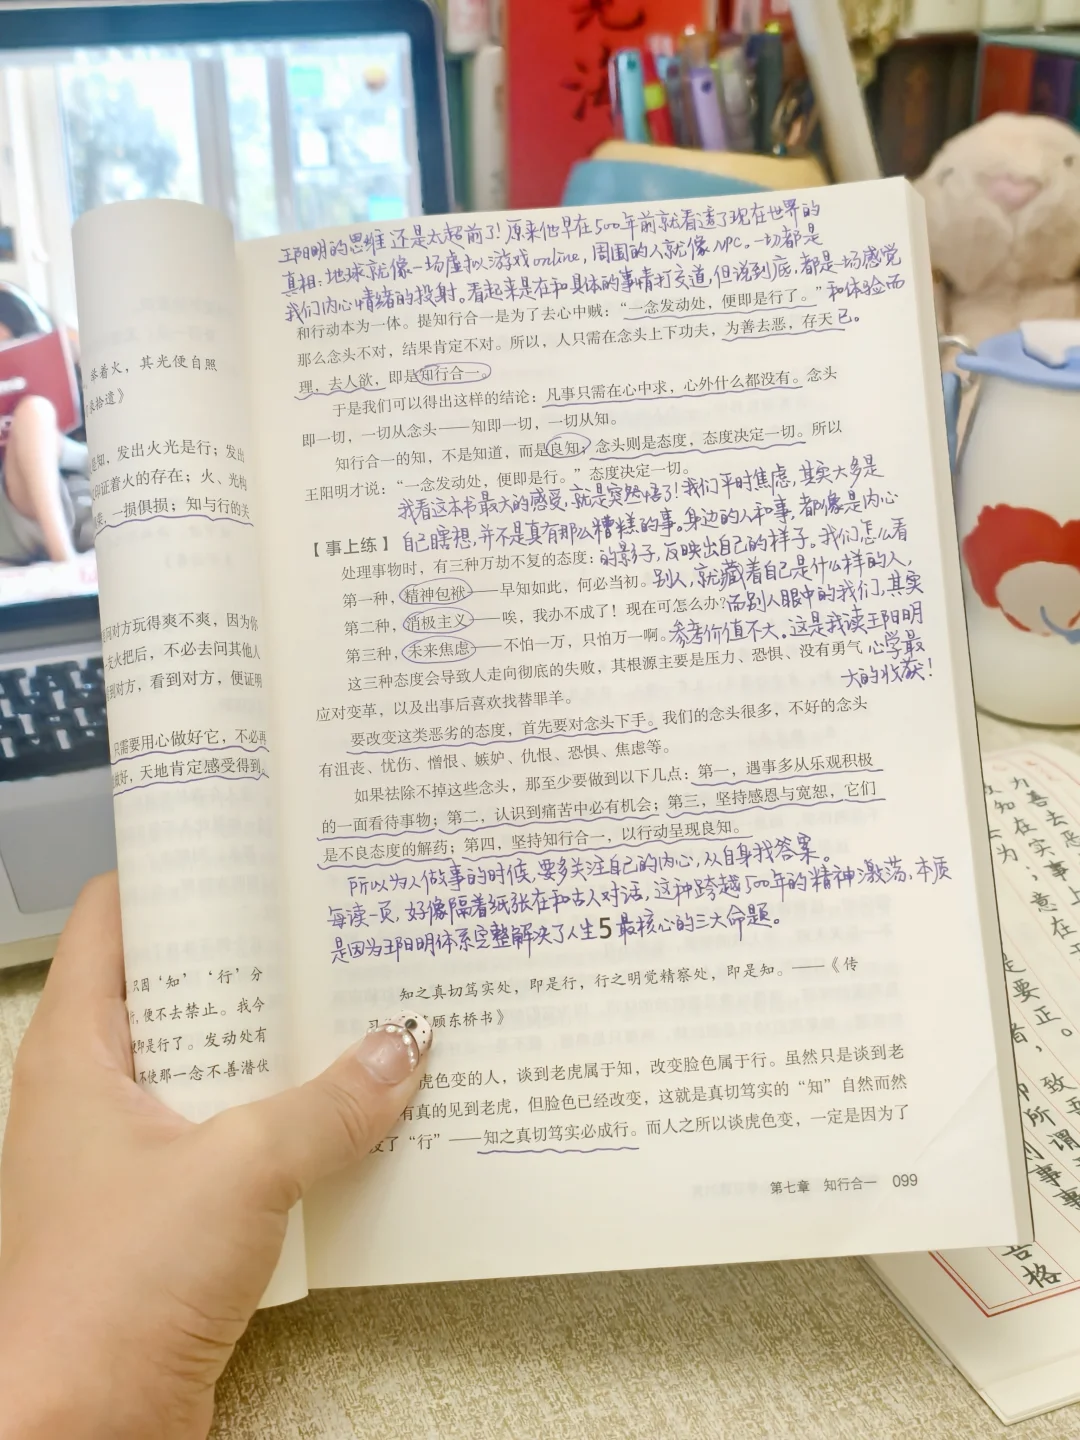 举着火，其光便自照
知，发出火光是行；发出
印证着火的存在；火、光构
一损俱损；知与行的关
对方玩得爽不爽，因为你
火把后，不必去问其他人
到对方，看到对方，便证明
只需要用心做好它，不必再
做好，天地肯定感受得到。
只因‘知’‘行’分
便不去禁止。我今
即是行了。发动处有
不使那一念不善潜伏
王阳明的思维还是太超前了！原来他早在500年前就看透了现在世界的
真相：地球就像一场虚拟游戏online，周围的人就像NPC。一切都是
我们内心情绪的投射。看起来是在和具体的事情打交道，但说到底，都是一场感觉
和体验而
已。
和行动本为一体。提知行合一是为了去心中贼：“一念发动处，便即是行了。”
那么念头不对，结果肯定不对。所以，人只需在念头上下功夫，为善去恶，存天
理，去人欲，即是知行合一。
于是我们可以得出这样的结论：凡事只需在心中求，心外什么都没有。念头
即一切，一切从念头——知即一切，一切从知。
知行合一的知，不是知道，而是良知；念头则是态度，态度决定一切。所以
王阳明才说：“一念发动处，便即是行。”态度决定一切。
我看这本书最大的感受，就是突然悟了！我们平时焦虑，其实大多是
自己瞎想，并不是真有那么糟糕的事。身边的人和事，都像是内心
的影子，反映出自己的样子。我们怎么看
别人，就藏着自己是什么样的人，
而别人眼中的我们，其实
参考价值不大。这是我读王阳明
心学最
大的收获！
【事上练】
处理事物时，有三种万劫不复的态度：
第一种，精神包袱——早知如此，何必当初。
第二种，消极主义——唉，我办不成了！现在可怎么办？
第三种，未来焦虑——不怕一万，只怕万一啊。
这三种态度会导致人走向彻底的失败，其根源主要是压力、恐惧、没有勇气
应对变革，以及出事后喜欢找替罪羊。
要改变这类恶劣的态度，首先要对念头下手。我们的念头很多，不好的念头
有沮丧、忧伤、憎恨、嫉妒、仇恨、恐惧、焦虑等。
如果祛除不掉这些念头，那至少要做到以下几点：第一，遇事多从乐观积极
的一面看待事物；第二，认识到痛苦中必有机会；第三，坚持感恩与宽恕，它们
是不良态度的解药；第四，坚持知行合一，以行动呈现良知。
所以为人做事的时候，要多关注自己的内心，从自身找答案。
每读一页，好像隔着纸张在和古人对话，这种跨越500年的精神激荡，本质
是因为王阳明体系完整解决了人生5最核心的三大命题。
知之真切笃实处，即是行，行之明觉精察处，即是知。——《传
习 顾东桥书》
虎色变的人，谈到老虎属于知，改变脸色属于行。虽然只是谈到老
有真的见到老虎，但脸色已经改变，这就是真切笃实的“知”自然而然
了“行”——知之真切笃实必成行。而人之所以谈虎色变，一定是因为了
第七章 知行合一 099
为善去恶
知在实事上
为；意在
要正。
致
所谓
事事
格